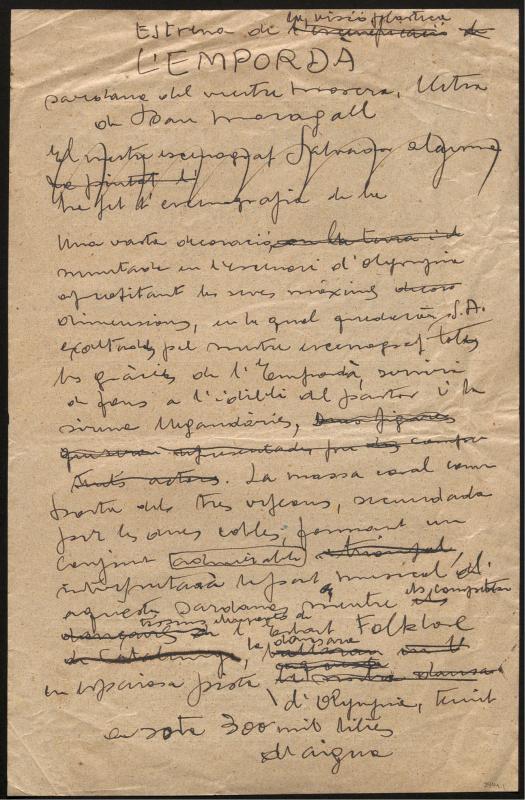 Estrena de la visió plàstica de
L'EMPORDÀ
sardana del mestre Morera, lletra
de Joan Maragall
El mestre escenògraf Salvador Alarma
ha pintat l'
ha fet l'escenografia de la
Una vasta decoració, en la terra i el
muntada en l'escenari d'Olympia
aprofitant les seves màximes
dimensions, en la qual quedaran
exaltades pel mestre escenògraf S.A. totes
les gràcies de l'Empordà, servirà
de fons a l'idil·li del pastor i la
sirena llegendàries,
que seran representades per dos
actors. La massa coral com
posta dels tres orfeons, secundada
per les dues cobles, formant un
conjunt admirable triomfal
interpretarà la part musical d'
aquesta sardana, mentre els
l'Esbart Folklore
de Catalunya, la dansarà
en espaiosa pista la nostra dansa
d'Olympia, tenint
a sota 300 mil litres
d'aigua